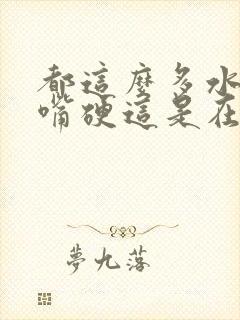 都這麼多水
嘴硬這是在
夢九落